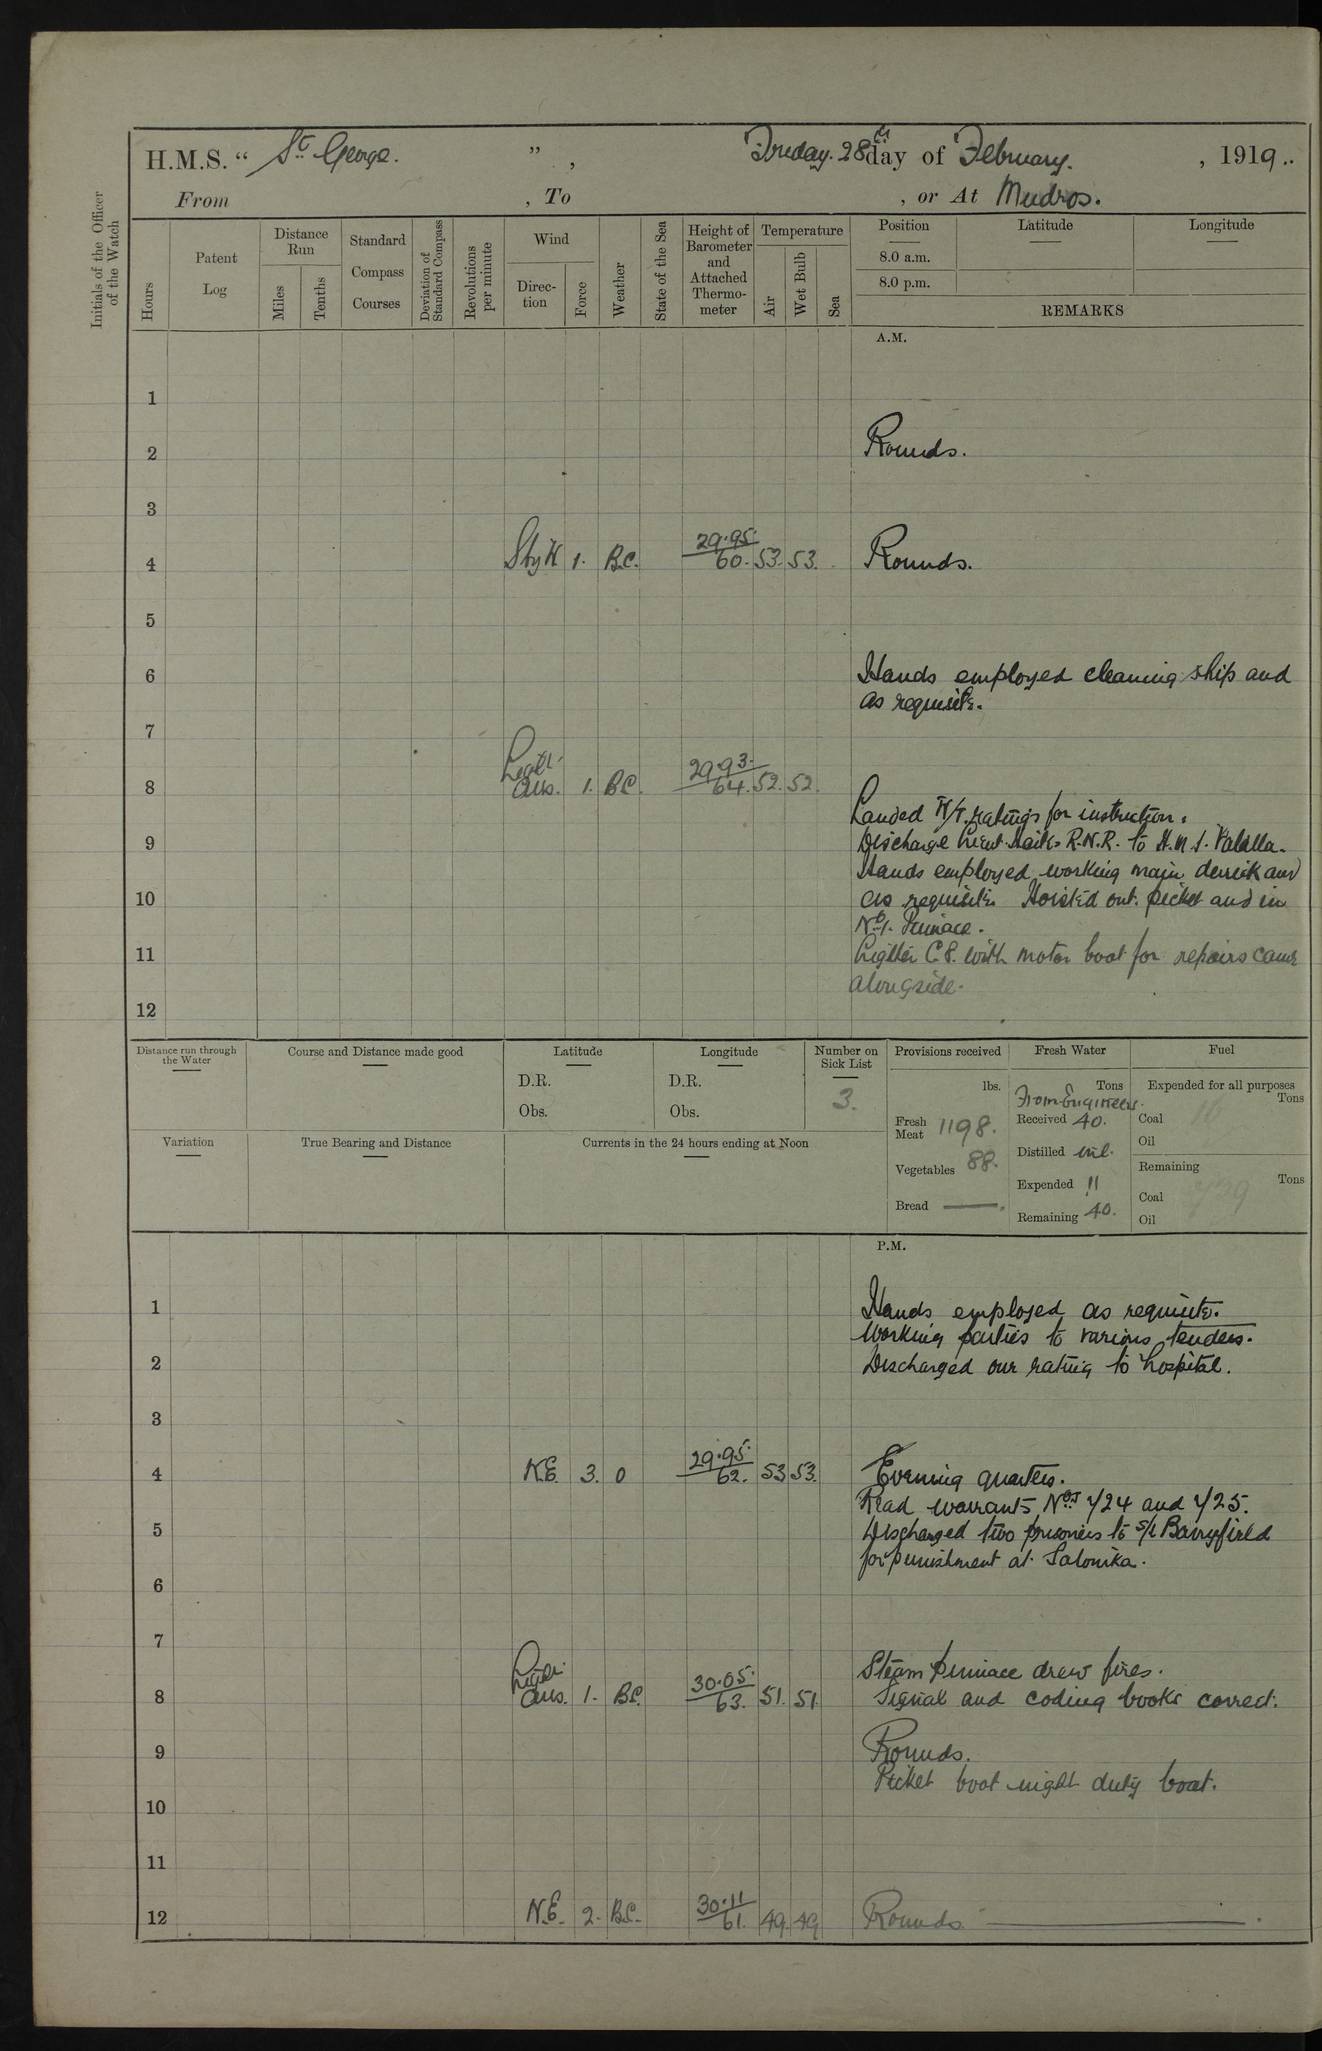 H.M.S. “ St George. ” , Friday. 28th day of February. , 1919..
From , To , or At Mudros.
Initials of the Officer of the Watch
Hours
Patent Log
Distance Run
Miles
Tenths
Standard Compass Courses
Deviation of Standard Compass
Revolutions per minute
Wind
Direc-tion
Force
Weather
State of the Sea
Height of Barometer and Attached Thermo-meter
Temperature
Air
Wet Bulb
Sea
Position Latitude Longitude
8.0 a.m.
8.0 p.m.
REMARKS
A.M.
1
2 Rounds.
3
4 1. B.C. 29.95. 60. 53. 53. Rounds.
5
6 Hands employed cleaning ship and
as requisite.
7
Light
8 airs. 1. B.C. 29.93. 64. 52. 52.
Landed W/T. ratings for instruction.
9 Discharge Lieut. R.N.R. to H.M.S. Valilla.
Hands employed working main derrick and
10 as requisite. Hoisted out picket and in
No 1. Pinnace.
11 Lighter C8. with motor boat for repairs came
alongside.
12
Distance run through the Water
Course and Distance made good
Latitude
D.R.
Obs.
Longitude
D.R.
Obs.
Number on Sick List
3.
Provisions received
lbs.
Fresh Meat 1198.
Vegetables 88.
Bread
Fresh Water
Tons
From Engineers.
Received 40.
Distilled nil.
Expended 11
Remaining 40.
Fuel
Expended for all purposes
Tons
Coal
Oil
Remaining
Tons
Coal
Oil
Variation
True Bearing and Distance
Currents in the 24 hours ending at Noon
P.M.
1 Hands employed as requisite.
Working parties to various tenders.
2 Discharged one rating to hospital.
3
4 N.E. 3. O 29.95. 62. 53 53. Evening quarters.
Read warrants Nos 724 and 725.
5 Discharged two prisoners to S/S Barryfield
for punishment at Salonika.
6
7
Steam pinnace drew fires.
Light
8 airs. 1. B.C. 30.05. 63. 51. 51. Signal and coding books correct.
9 Rounds.
Picket boat night duty boat.
10
11
12 N.E. 2. B.C. 30.11 61. 49. 49 Rounds.